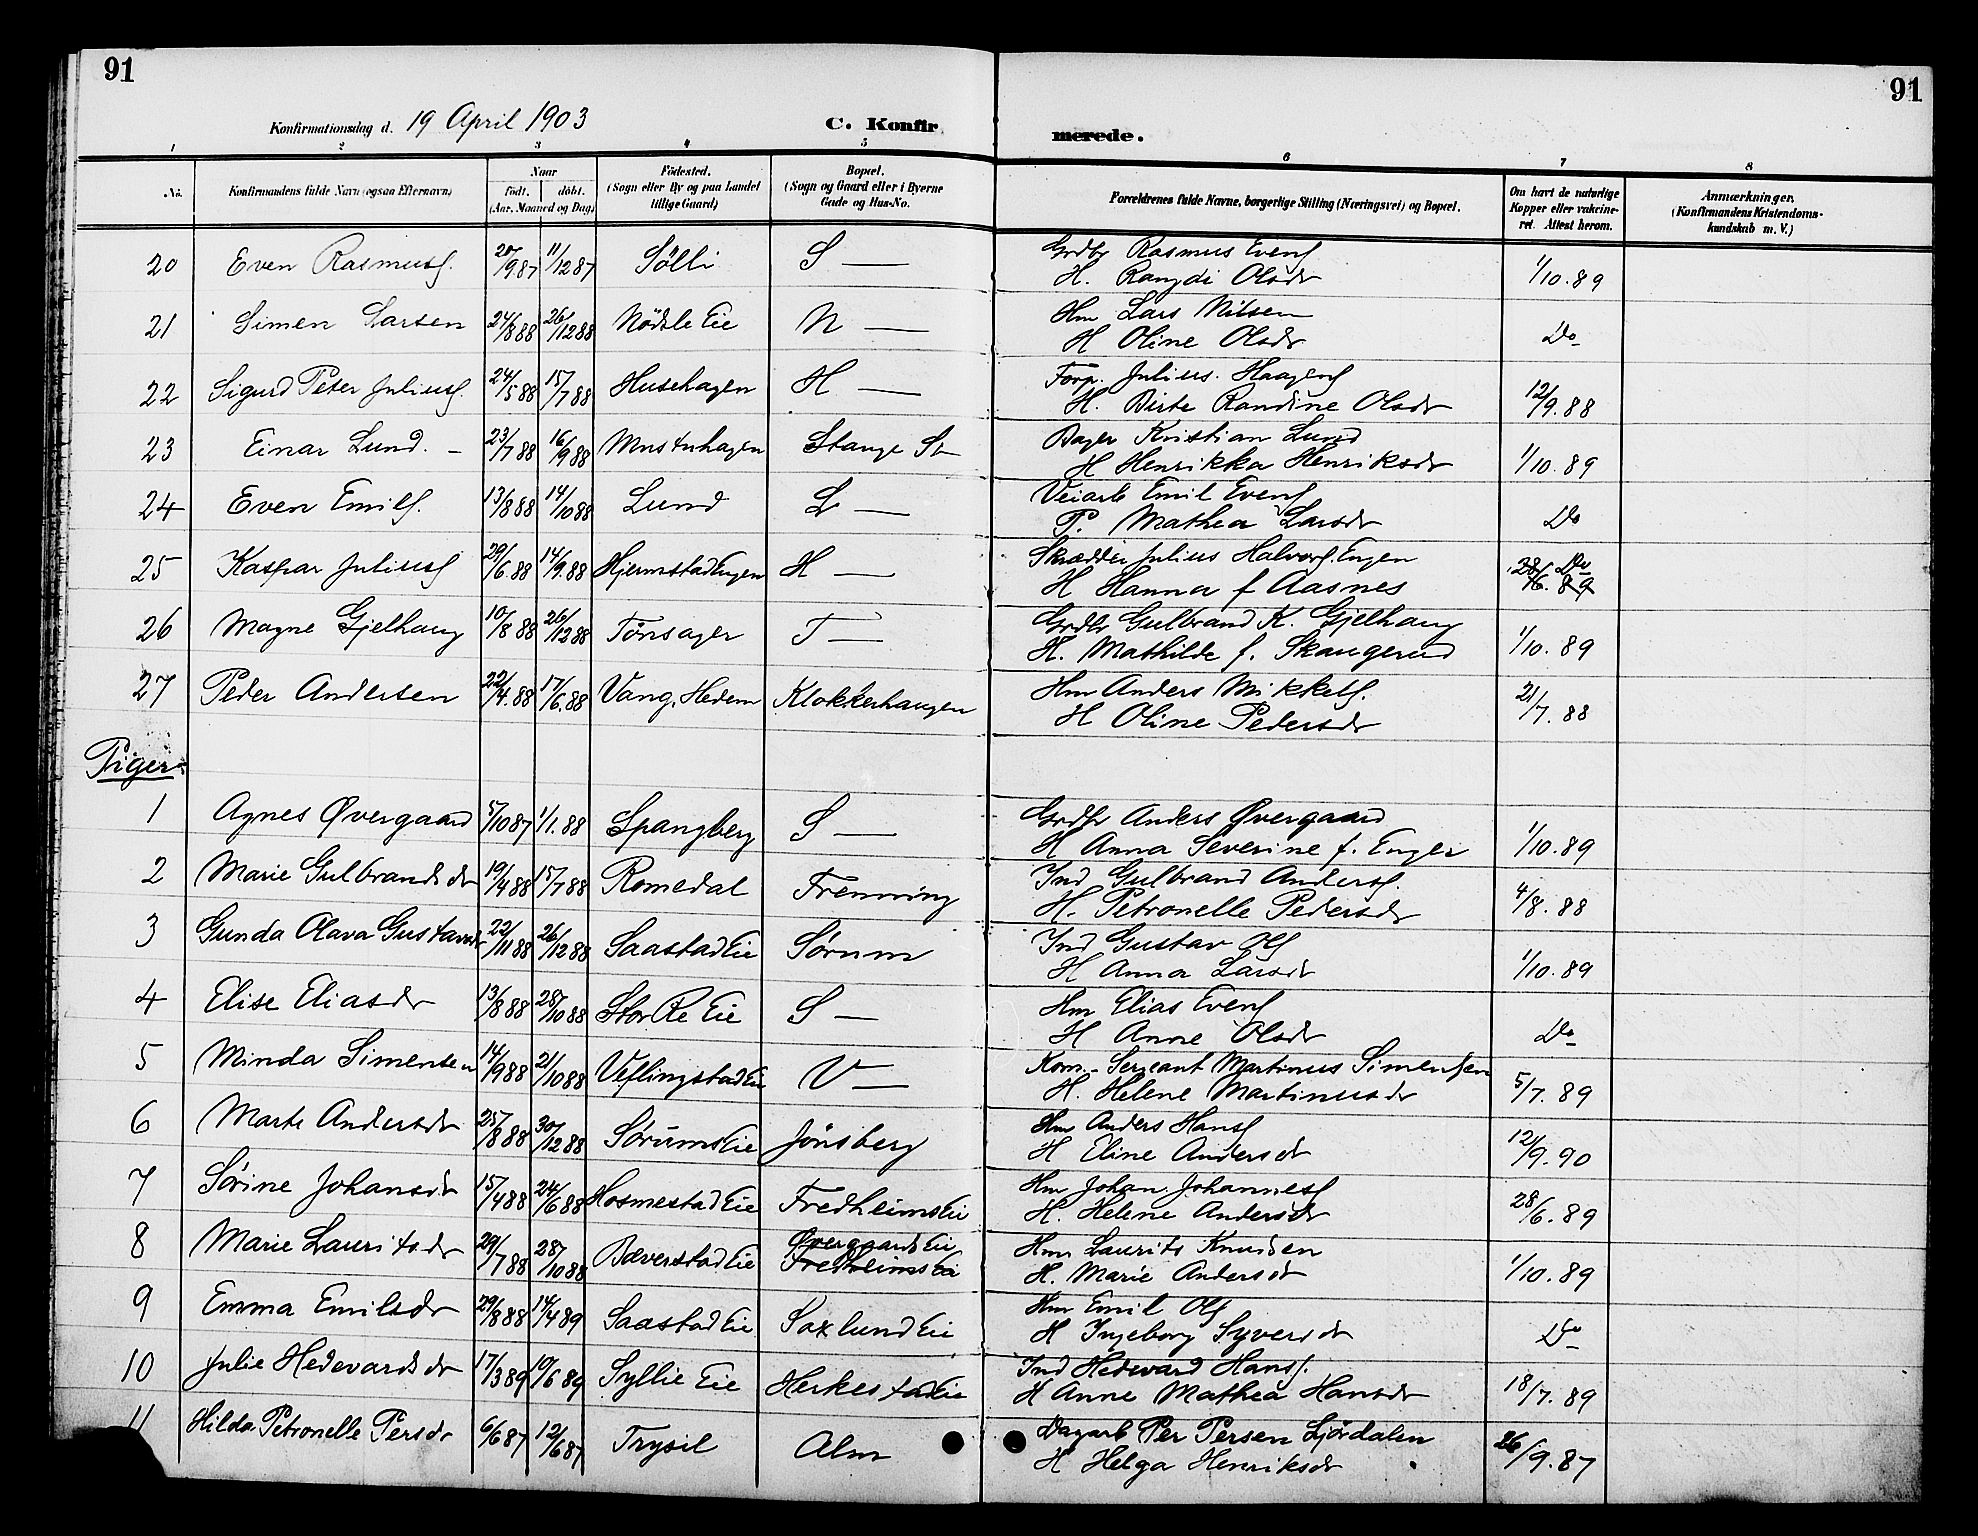 91
91
Konfirmationsdag d. 19 April 1903
C. Konfir
merede.
1 2 3 4 5 6 7 8
No. Konfirmandens fulde Navn (ogsaa Efternavn) Naar födt. döbt. (Aar, Maaned og Dag) Födested. (Sogn eller By og paa Landet tillige Gaard) Bopæl. (Sogn og Gaard eller i Byerne Gade og Hus-No. Forældrenes fulde Navne, borgerlige Stilling (Næringsvei) og Bopæl. Om havt de naturlige Kopper eller vakcineret. Attest herom. Anmærkninger. (Konfirmandens Kristendomskundskab m. V.)
20 Even Rasmuss. 20/9 87 11/12 87 Sölli S — Grdbr Rasmus Evens
H. Rangdi Olsdr 1/10. 89
21 Simen Larsen 24/8 88 26/12 88 Nödsle Eie N — Hm Lars Nilsen
H Oline Olsdr Do
22 Sigurd Peter Juliuss. 24/5 88 15/7 88 Husehagen H — Forp. Julius Haagens
H. Birte Randine Olsdr 12/9. 88
23 Einar Lund. – 23/7 88 16/9 88 Stange St Bager Kristian Lund
H Henrikka Henriksdr 1/10. 89
24 Even Emils. 13/8 88 14/10 88 Lund L — Veiarb Emil Evens
P. Mathea Larsdr Do
25 Kaspar Juliuss 29/6. 88 14/9. 88 Hjermstad Engen H — Skrædder Julius Halvors. Engen
H Hanna f Aasnes 28/6. 89 Do
26 Magne Gjelhaug 10/8 88 26/12 88 Tönsager T — Grdbr Gulbrand K. Gjelhaug
H. Mathilde f. Skaugerud 1/10. 89
27 Peder Andersen 22/4. 88 17/6. 88 Vang, Hedem Klokkerhaugen Hm Anders Mikkels.
H Oline Pedersdr 21/7. 88
Piger:
1 Agnes Øvergaard 5/10 87 1/1. 88 Spangberg S — Grdbr Anders Øvergaard
H Anna Severine f. Enger 1/10. 89
2 Marie Gulbrandsdr 19/4 88 15/7 88 Romedal Frenning Ind Gulbrand Anders.
H. Petronelle Pedersdr 4/8. 88
3 Gunda Olava Gustavsdr 22/11 88 26/12 88 Saastad Eie Sørum Ind Gustav Ols
H Anna Larsdr 1/10. 89
4 Elise Eliasdr 13/8 88 28/10 88 Stor Re Eie S — Hm Elias Evens
H Anne Olsdr Do
5 Minda Simensen 14/9 88 21/10 88 Veflingstad Eie V — Kom. Sergeant Martinus Simensen
H. Helene Martinusdr 5/7. 89
6 Marte Andersdr 25/8 88 30/12 88 Sørums Eie Jönsberg Hm Anders Hans
H Eline Andersdr 12/9. 90
7 Sörine Johansdr 15/4 88 24/6 88 Hosmestad Eie Fredheims Eie Hm Johan Johanness
H. Helene Andersdr 28/6. 89
8 Marie Lauritsdr 29/7 88 28/10 88 Bæverstad Eie Øvergaards Eie Fredheims Eie Hm Laurits Knudsen
H. Marie Andersdr 1/10. 89
9 Emma Emilsdr 29/8 88 14/4 89 Saastad Eie Saxlund Eie Hm Emil Ols
H Ingeborg Syversdr Do
10 Julie Hedevardsdr 17/3 89 10/6 89 Syllie Eie Herkestad Eie Ind Hedevard Hans.
H Anne Mathea Hansdr 18/7. 89
11 Hilda Petronelle Persdr 6/6 87 12/6 87 Trysil Alm Dagarb Per Persen Ljördalen
H Helga Henriksdr 26/9. 87